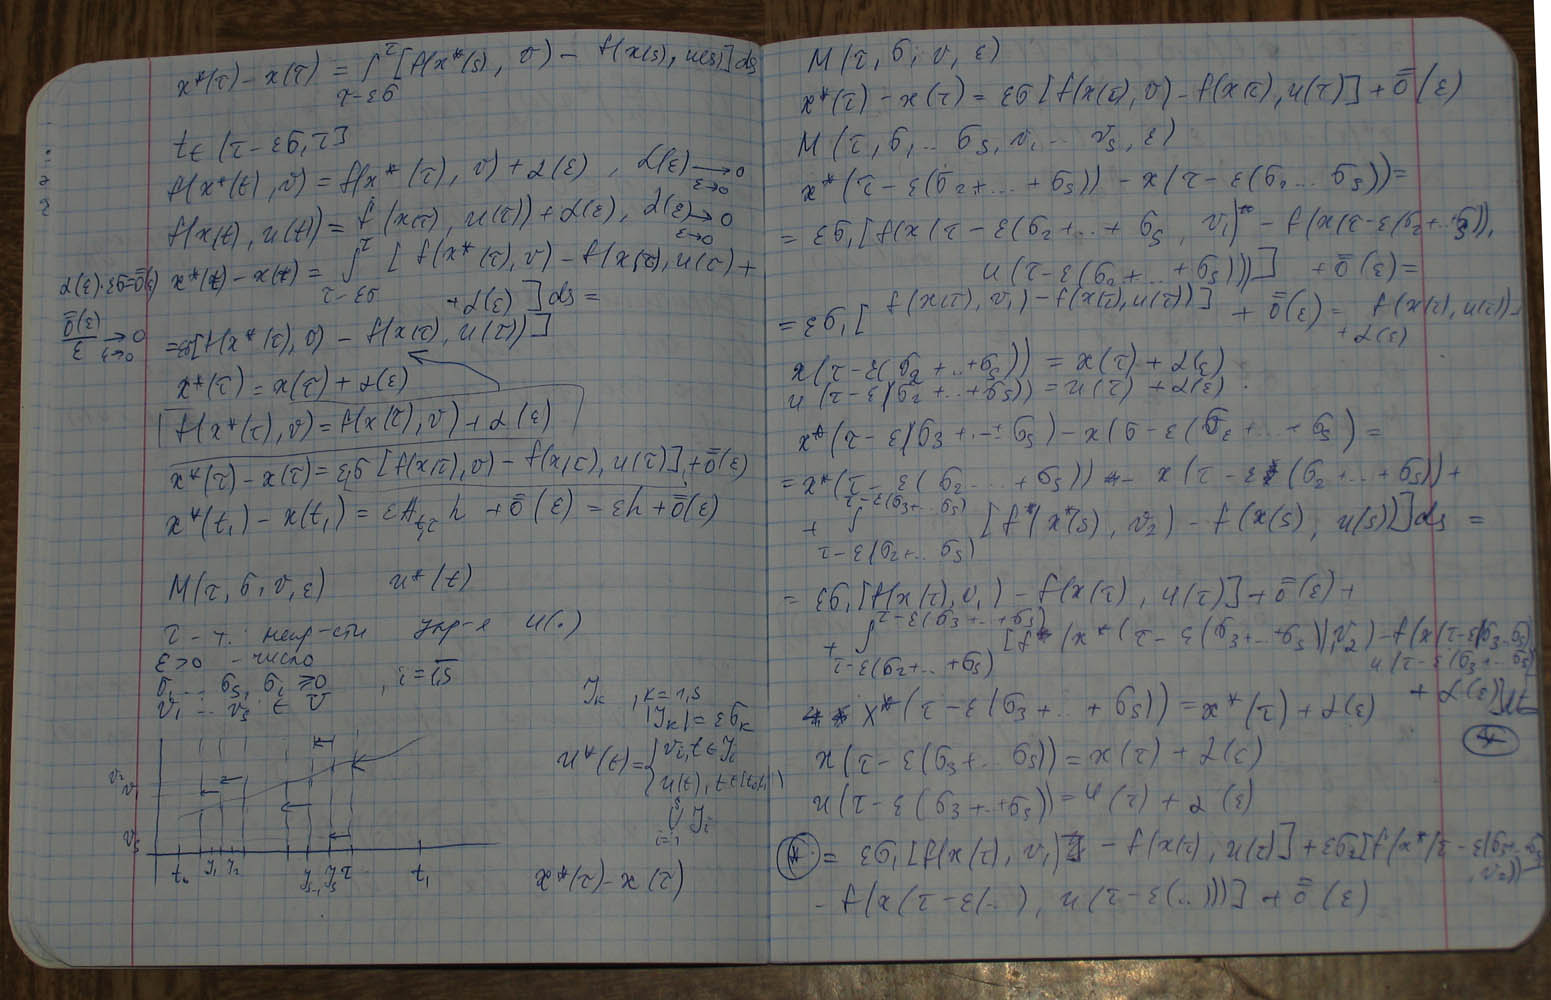 x*(τ) - x(τ) = ∫_{τ-εσ}^{τ} [f(x*(s), v) - f(x(s), u(s))] ds
t∈[τ-εσ, τ]
f(x*(t), v) = f(x*(τ), v) + α(ε), α(ε) →_{ε→0} 0
f(x(t), u(t)) = f(x(τ), u(τ)) + α(ε), α(ε) →_{ε→0} 0
x*(t) - x(t) = ∫_{τ-εσ}^{τ} [f(x*(τ), v) - f(x(τ), u(τ) +
+ α(ε)] ds =
α(ε)·εσ=ō̄(ε)
ō̄(ε)/ε →_{ε→0} 0
= εσ[f(x*(τ), v) - f(x(τ), u(τ))]
x*(τ) = x(τ) + α(ε)
f(x*(τ), v) = f(x(τ), v) + α(ε)
x*(τ) - x(τ) = εσ [f(x(τ), v) - f(x(τ), u(τ)] + ō̄(ε)
x*(t₁) - x(t₁) = εA h + ō̄(ε) = εh + ō̄(ε)
M(τ, σ, v, ε) u*(t)
τ - т. непр-сти упр-я u(.)
ε>0 - число
σ₁ ... σs, σi ≥0, i=1,s
v₁ ... vs ∈ V
Jk, k=1,s
|Jk| = εσk
u*(t) = { vi, t∈Ji
u(t), t∈[t₀,t₁] \
∪_{i=1}^{s} Ji
v₂
v₁
vs
t₀ J₁ J₂ Js-1 Js τ t₁
x*(τ) - x(τ)
M(τ, σ, v, ε)
x*(τ) - x(τ) = εσ [f(x(τ), v) - f(x(τ), u(τ)] + ō̄(ε)
M(τ, σ₁ ... σs, v₁ ... vs, ε)
x*(τ - ε(σ₂+...+σs)) - x(τ - ε(σ₂ ... σs)) =
= εσ₁[f(x(τ - ε(σ₂+...+σs, v₁)* - f(x(τ-ε(σ₂+...σs)),
u(τ-ε(σ₂+...+σs)))] + ō̄(ε) =
= εσ₁[f(x(τ), v₁) - f(x(τ), u(τ))] + ō̄(ε) = f(x(τ), u(τ))+
+ α(ε)
x(τ-ε(σ₂+...+σs)) = x(τ) + α(ε)
u(τ-ε(σ₂+...+σs)) = u(τ) + α(ε).
x*(τ-ε(σ₃+...+σs) - x(σ-ε(σ₃+...+σs) =
= x*(τ-ε(σ₂ ... +σs)) - x(τ-ε(σ₂+...+σs)) +
+ ∫_{τ-ε(σ₂+...σs)}^{τ-ε(σ₃+...σs)} [f*(x*(s), v₂) - f(x(s), u(s))] ds =
= εσ₁[f(x(τ), v₁) - f(x(τ), u(τ)] + ō̄(ε) +
+ ∫_{τ-ε(σ₂+...+σs)}^{τ-ε(σ₃+...+σs)} [f(x*(τ-ε(σ₃+...+σs)), v₂) - f(x(τ-ε(σ₃..σs)
u(τ-ε(σ₃+...σs))
+ α(ε)] dt
x*(τ-ε(σ₃+...+σs)) = x*(τ) + α(ε)
(*)
x(τ-ε(σ₃+...σs)) = x(τ) + α(ε)
u(τ-ε(σ₃+...+σs)) = u(τ) + α(ε)
(*) = εσ₁[f(x(τ), v₁) - f(x(τ), u(τ)] + εσ₂[f(x*(τ-ε(σ₃..σs
, v₂)) -
- f(x(τ-ε(...), u(τ-ε(...)))] + ō̄(ε)